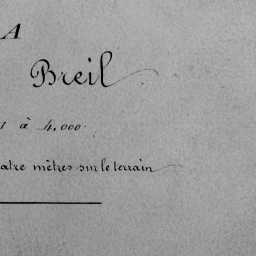 A
Breil
1 à 4.000.
atre mètres sur le terrain